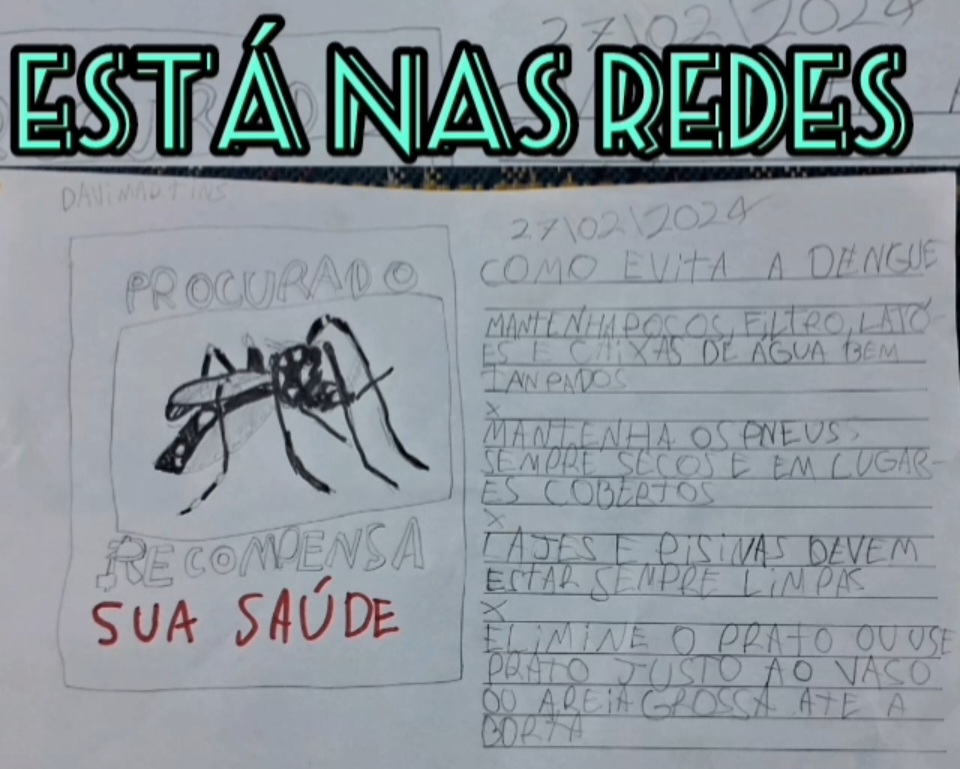 27\02\2024
ESTÁ NAS REDES
DAVI MARTINS
PROCURADO
RECOMPENSA
SUA SAÚDE
27\02\2024
COMO EVITA A DENGUE
MANTENHA POÇOS, FILTRO, LATÕ-
ES E CAIXAS DE ÁGUA BEM
TANPADOS
X
MANTENHA OS PNEUS
SEMPRE SECOS E EM LUGAR-
ES COBERTOS
X
LAJES E PISINAS DEVEM
ESTAR SEMPRE LIMPAS
X
ELIMINE O PRATO OU USE
PRATO JUSTO AO VASO
OU AREIA GROSSA ATE A
BORTA